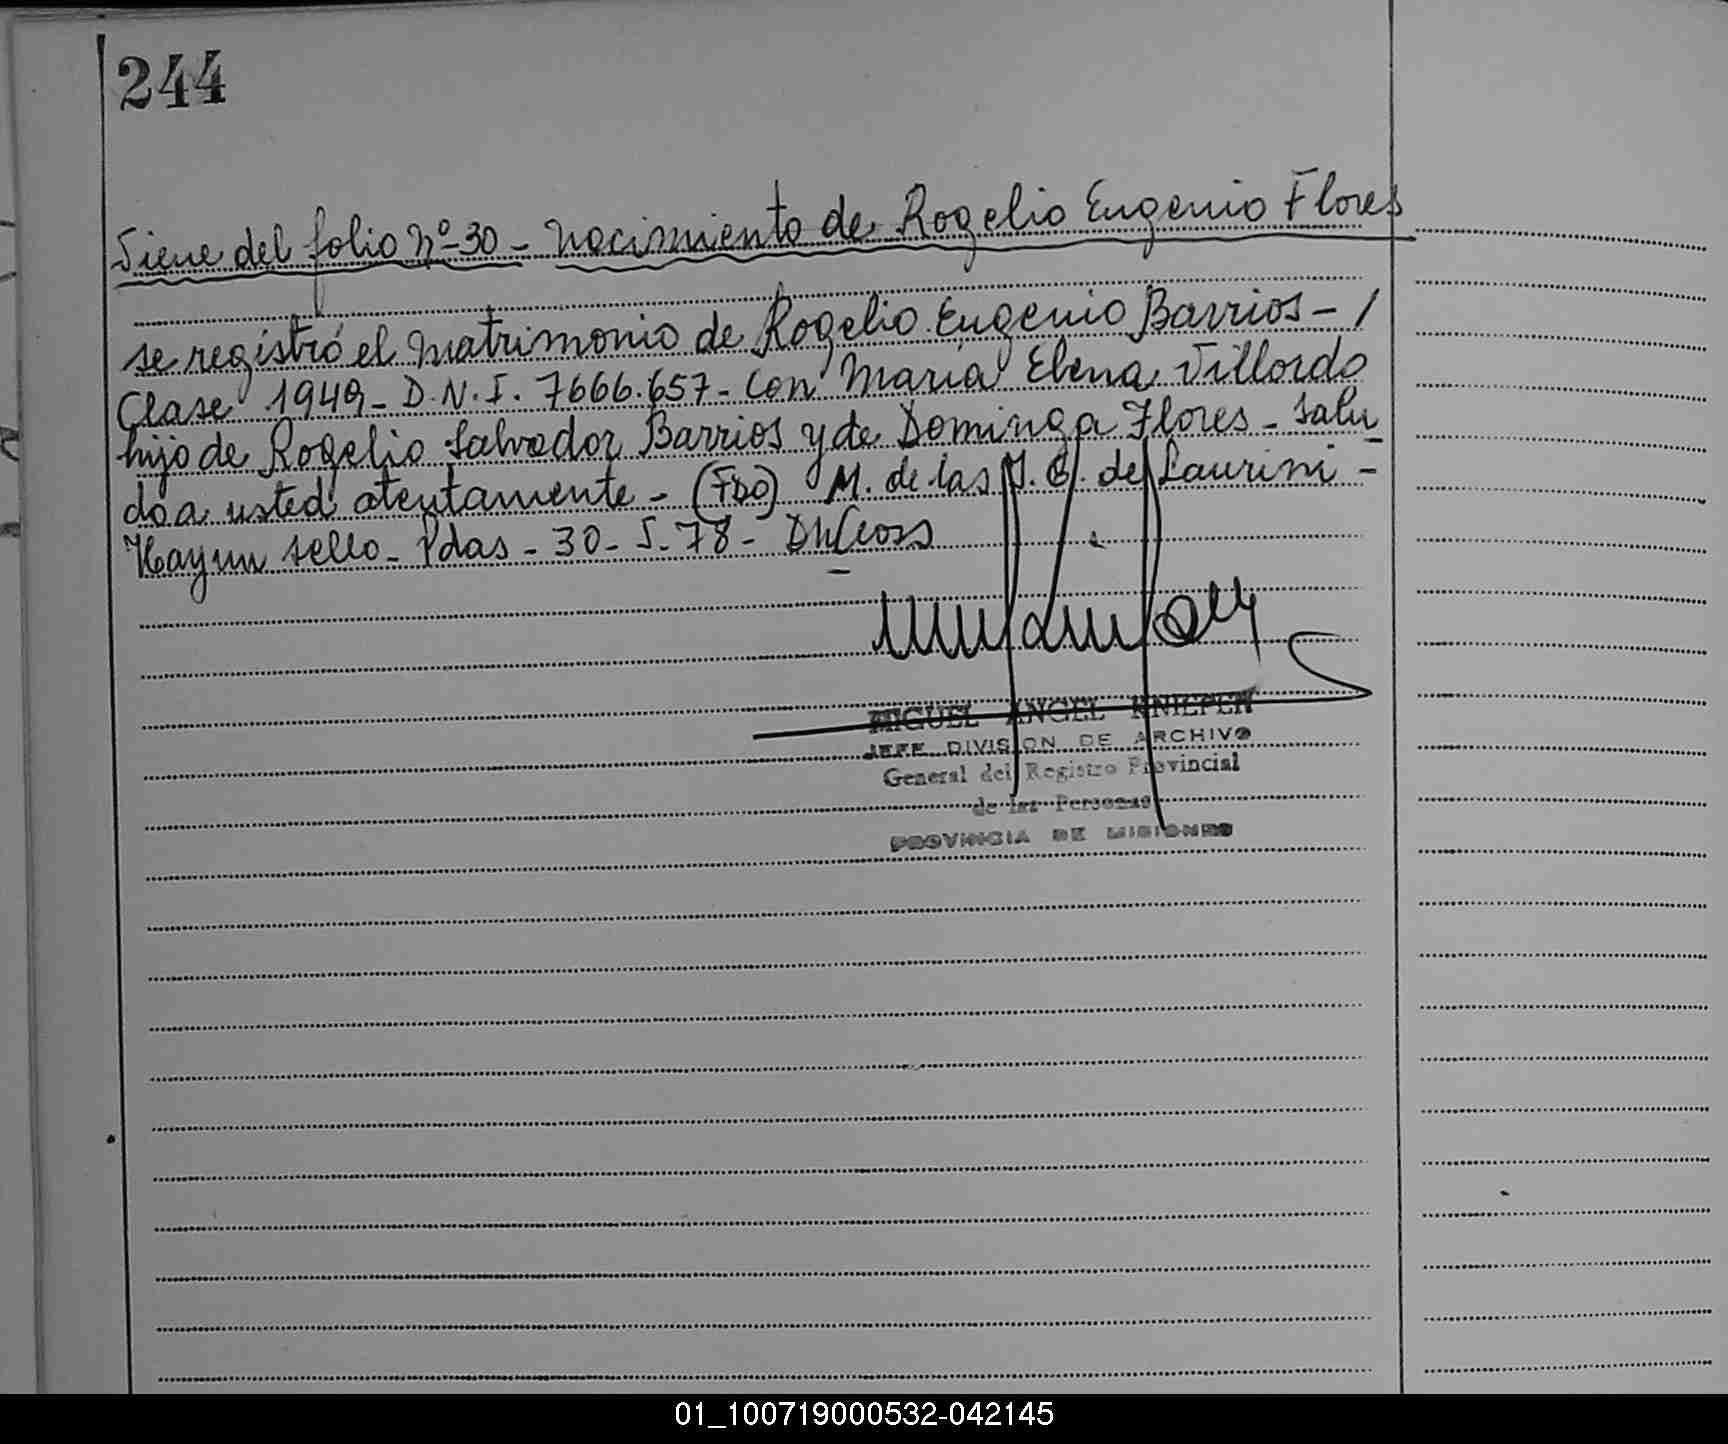 244
Viene del folio Nº 30 - Nacimiento de Rogelio Eugenio Flores
se registró el matrimonio de Rogelio Eugenio Barrios - /
Clase 1949 - D.N.I. 7666.657 - Con María Elena Villordo
hijo de Rogelio Salvador Barrios y de Dominga Flores - Salu
do a usted atentamente - (FDO) M. de las de Laurini -
Hay un sello - Pdas - 30 - 5 - 78 -
MIGUEL ANGEL KNIEPEN
JEFE DIVISION DE ARCHIVO
General del Registro Provincial
de las Personas
PROVINCIA DE MISIONES
01_100719000532-042145